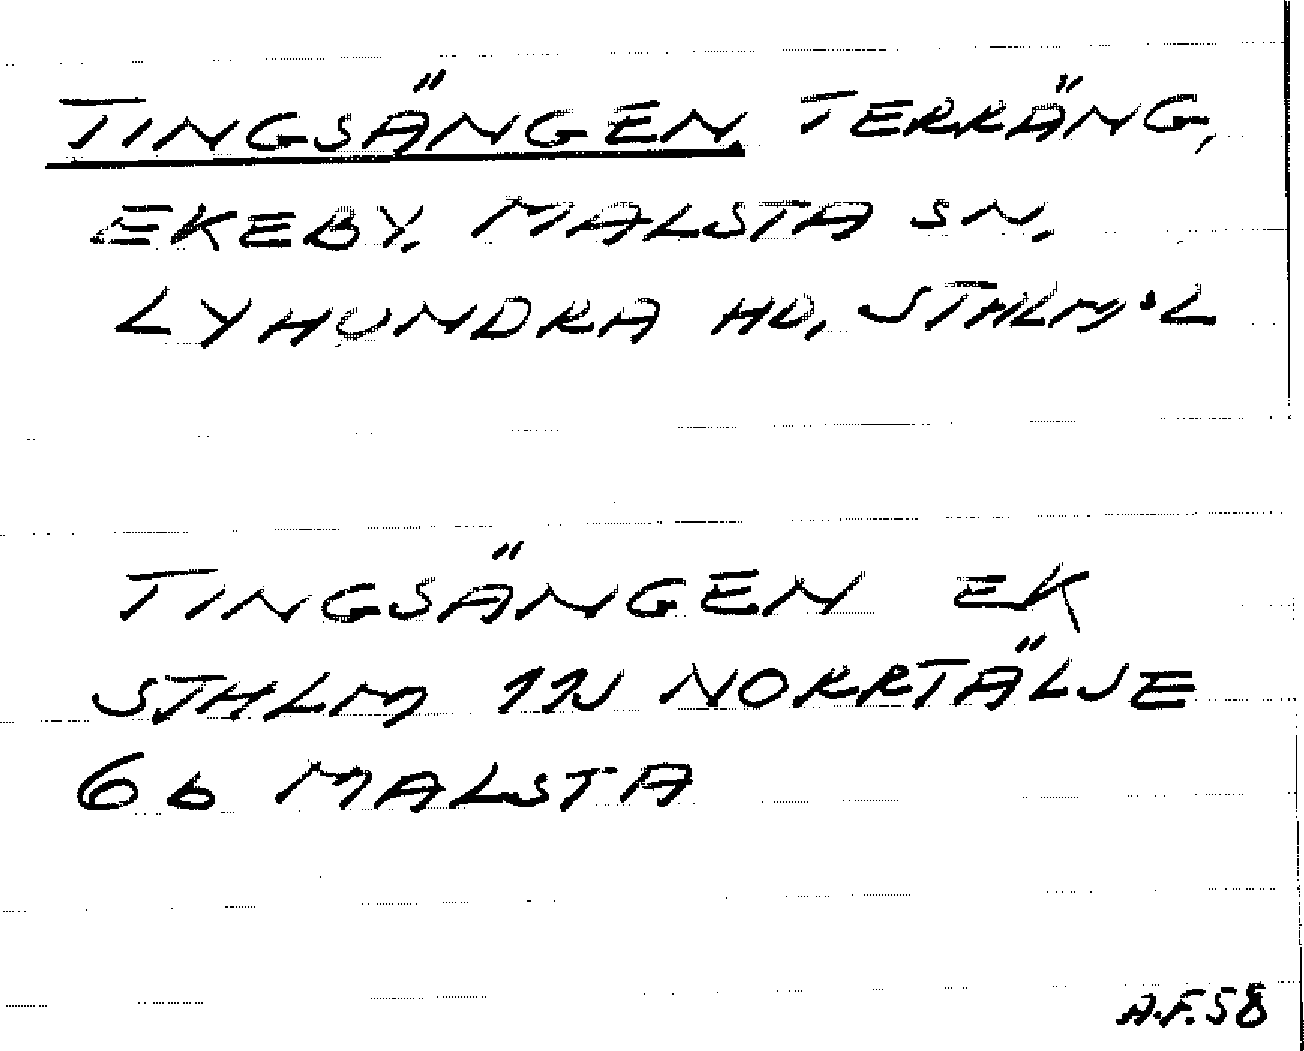 TINGSÄNGEN, TERRÄNG,
EKEBY, MALSTA SN,
LYHUNDRA HD, STHLM·L
TINGSÄNGEN EK
STHLM 11J NORRTÄLJE
6b MALSTA
A.F.58